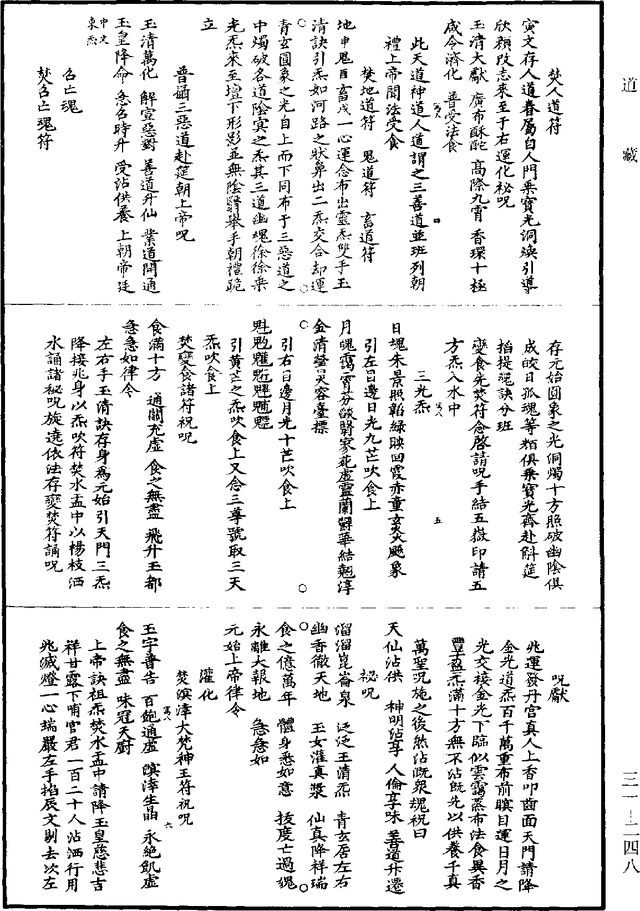 道藏
焚人道符
寅文存人道眷屬自人門乘寶光洞煥引導
欣顏改志來至于右運化秘呪
玉清大獻 廣布酥酡 高際九霄 香環十極
咸令濟化 普受法食
此天道神道人道謂之三善道並班列朝
禮上帝聞法受食
焚地道符 鬼道符 畜道符
地申鬼酉畜戌一心運念布出靈炁雙手玉
清訣引炁如河路之狀鼻出二炁交合却運
青玄圓象之光自上而下同布于三惡道之
中燭破各道陰冥之炁其三道幽魂徐徐乘
光炁來至壇下形影並無陰翳舉手朝禮跪
立
普攝三惡道赴筵朝上帝呪
玉清萬化 解宣惡對 善道升仙 業道開通
玉皇降命 急召時升 受沾供養 上朝帝廷
召亡魂
焚召亡魂符
存元始圓象之光洞燭十方照破幽陰俱
成皎日孤魂等類俱乘寶光齊赴斛筵
掐提魂訣分班
變食先焚符念啓請呪手結五嶽印請五
方炁入水中
三光炁
日魂朱景照韜綠映回霞赤童玄炎飈象
引左目邊日光九芒吹食上
月魄靄
金清瑩炅容臺標
引右目邊月光十芒吹食上
魁𩲃𩵄𩳐魓𩳙魒
引黃芒之炁吹食上又念三尊號取三天
炁吹食上
焚變食諸符祝呪
食滿十方 通關充虛 食之無盡 飛升玉都
急急如律令
左右手玉清訣存身為元始引天門三炁
降接兆身以炁吹符焚水盂中以楊枝洒
水誦諸秘呪旋遶依法存變焚符誦呪
呪獻
兆運發丹宮真人上香叩齒面天門請降
金光道炁百千萬重布前瞑目運日月之
光交接金光下臨似雲靄蒸布法食異香
豐盈炁滿十方無不沾既先以供養千真
萬聖呪施之後然沾既眾魂祝曰
天仙沾供 神明沾享 人倫享味 善道升遷
秘呪
溜溜崑崙泉 泛泛玉清炁 青玄居左右
幽香徹天地 玉女灌真漿 仙真降祥瑞
食之億萬年 體身悉如意 技度亡過魂
永離大報地 急急如
元始上帝律令
灌化
焚溟涬大梵神王符祝呪
玉字普告 百飽通虛 溟涬生晶 永絕飢虛
食之無盡 味冠天廚
上帝訣祖炁焚水盂中請降玉皇慈悲吉
祥甘露下哺官君一百二十人沾洒行用
兆滅燈一心端嚴左手掐辰文剔去坎左
三一—二四八